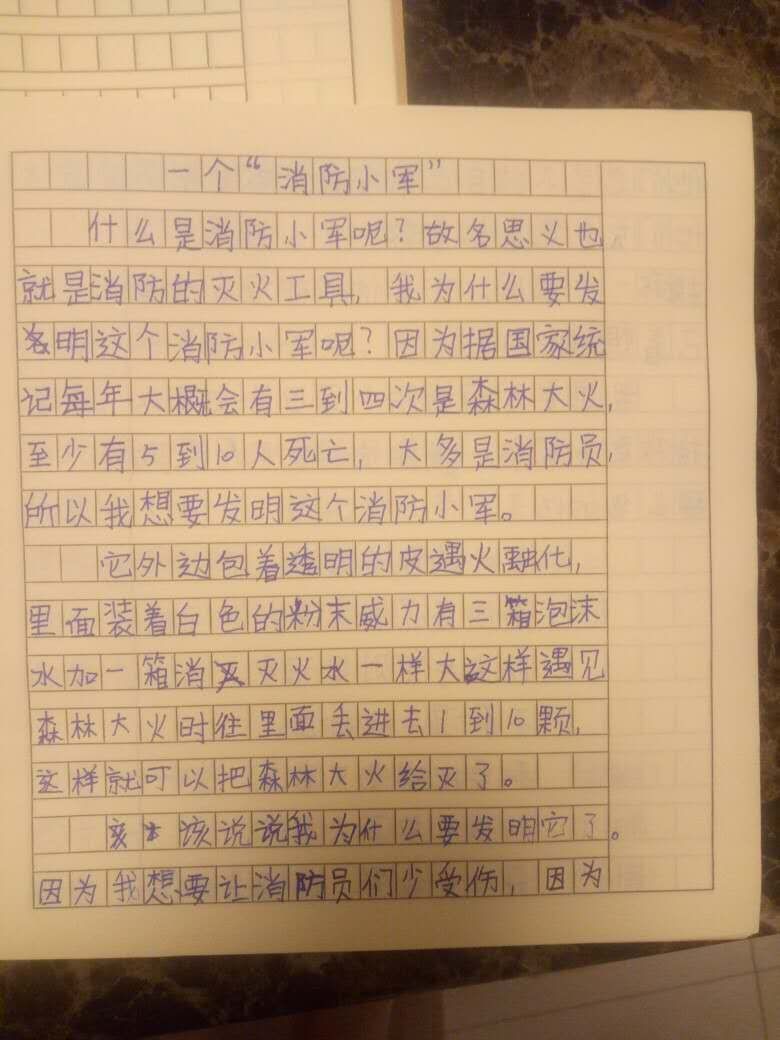 一个“消防小军”
什么是消防小军呢？故名思义也
就是消防的灭火工具，我为什么要发
明这个消防小军呢？因为据国家统
记每年大概会有三到四次是森林大火，
至少有5到10人死亡，大多是消防员，
所以我想要发明这个消防小军。
它外边包着透明的皮遇火融化，
里面装着白色的粉末威力有三箱泡沫
水加一箱消灭火水一样大这样遇见
森林大火时往里面丢进去1到10颗，
这样就可以把森林大火给灭了。
该说说我为什么要发明它了。
因为我想要让消防员们少受伤，因为